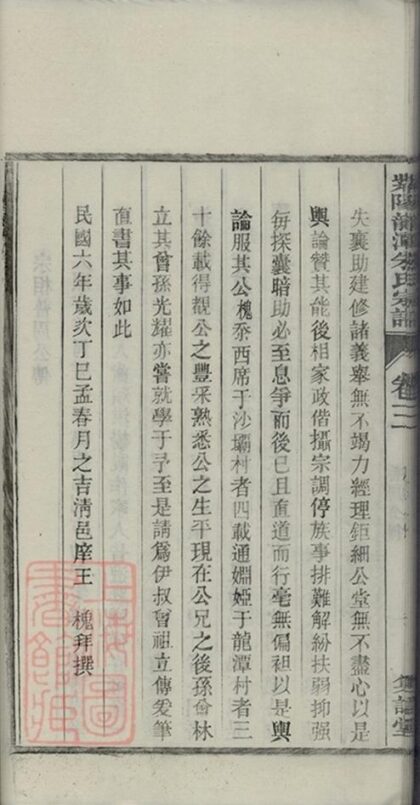 紫陽龍潭朱氏宗譜
卷三
失襄助建修諸義舉無不竭力經理鉅細公堂無不盡心以是
輿論贊其能後相家政偕攝宗調停族事排難解紛扶弱抑强
每探囊暗助必至息爭而後已且直道而行毫無偏袒以是輿
論服其公槐忝西席于沙壩村者四載通婣婭于龍潭村者三
十餘載得觀公之豐采熟悉公之生平現在公兄之後孫曾林
立其曾孫光耀亦嘗就學于予至是請爲伊叔曾祖立傳爰筆
直書其事如此
民國六年歲次丁巳孟春月之吉淸邑庠王 槐拜撰